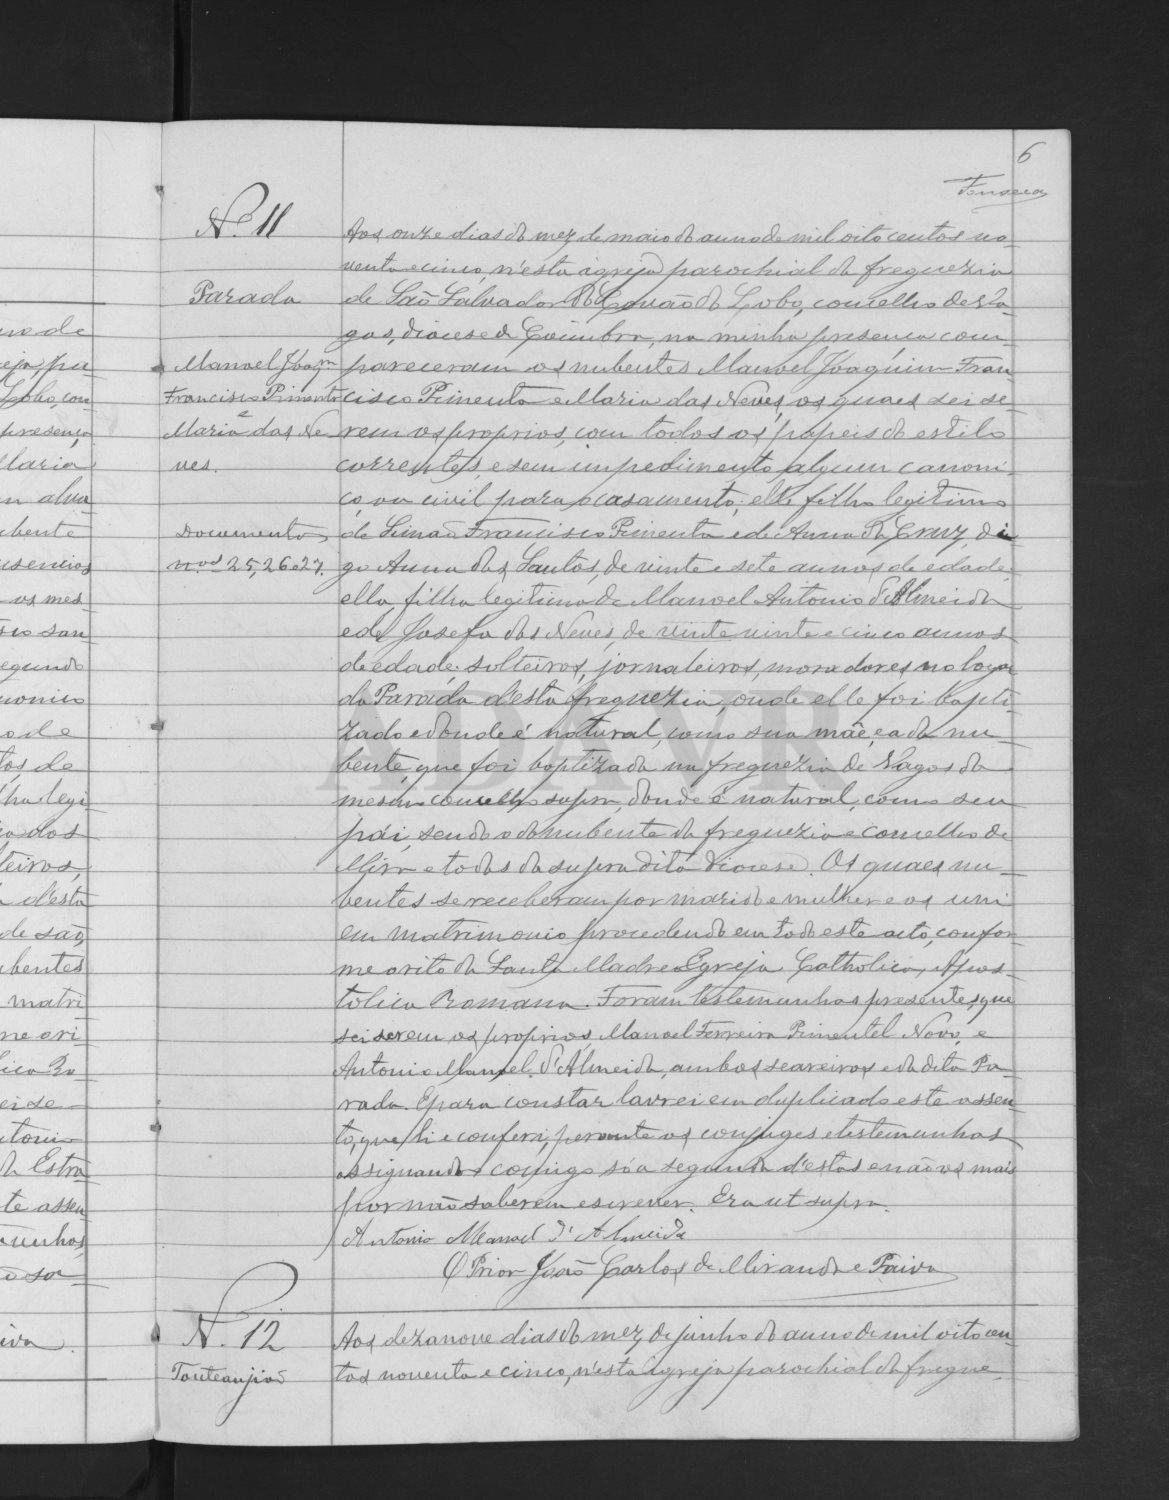 6
Fonseca
Nº 11
Parada
Manoel Joaqm
Francisco Pimenta
e
Maria das Ne-
ves.
Documentos
nos 25, 26 e 27.
Aos onze dias do mez de maio do anno de mil oito centos no-
venta e cinco, n'esta igreja parochial da freguezia
de São Salvador do Covão do Lobo, concelho de Va-
gos, diocese de Coimbra, na minha presença com-
pareceram os nubentes Manoel Joaquim Fran-
cisco Pimenta e Maria das Neves, os quaes sei se-
rem os proprios, com todos os papeis do estilo
correntes, e sem impedimento algum canoni-
co, ou civil para o casamento; elle filho legitimo
de Simão Francisco Pimenta e de Anna da Cruz, di-
go Anna dos Santos, de vinte e sete annos de edade;
ella, filha legitima de Manoel Antonio d'Almeida
e de Josefa das Neves, de vinte vinte e cinco annos
de edade; solteiros, jornaleiros, moradores no logar
da Parada d'esta freguezia, onde elle foi bapti-
zado e donde é natural, como sua mãe, e a da nu-
bente, que foi baptizada na freguezia de Vagos do
mesmo concelho supra, donde é natural, como seu
pái, sendo o do nubente da freguezia e concelho de
Mira e todos da supra dita diocese. Os quaes nu-
bentes se receberam por marido e mulher e os uni
em matrimonio procedendo em todo este acto, confor-
me o rito da Santa Madre Egreja Catholica, Apos-
tolica Romana. Foram testemunhas presentes, que
sei serem os proprios, Manoel Ferreira Pimentel Novo, e
Antonio Manoel d'Almeida, ambos seareiros e da dita Pa-
rada. E para constar lavrei em duplicado este assen-
to, que li e conferi, perante os conjuges e testemunhas
assignando comigo só a segunda d'estas e não os mais
por não saberem escrever. Era ut supra.
Antonio Manoel d'Almeida
O Prior João Carlos de Miranda e Paiva
N. 12
Aos dezanove dias do mez de junho do anno de mil oito cen-
tos noventa e cinco, n'esta igreja parochial da fregue-